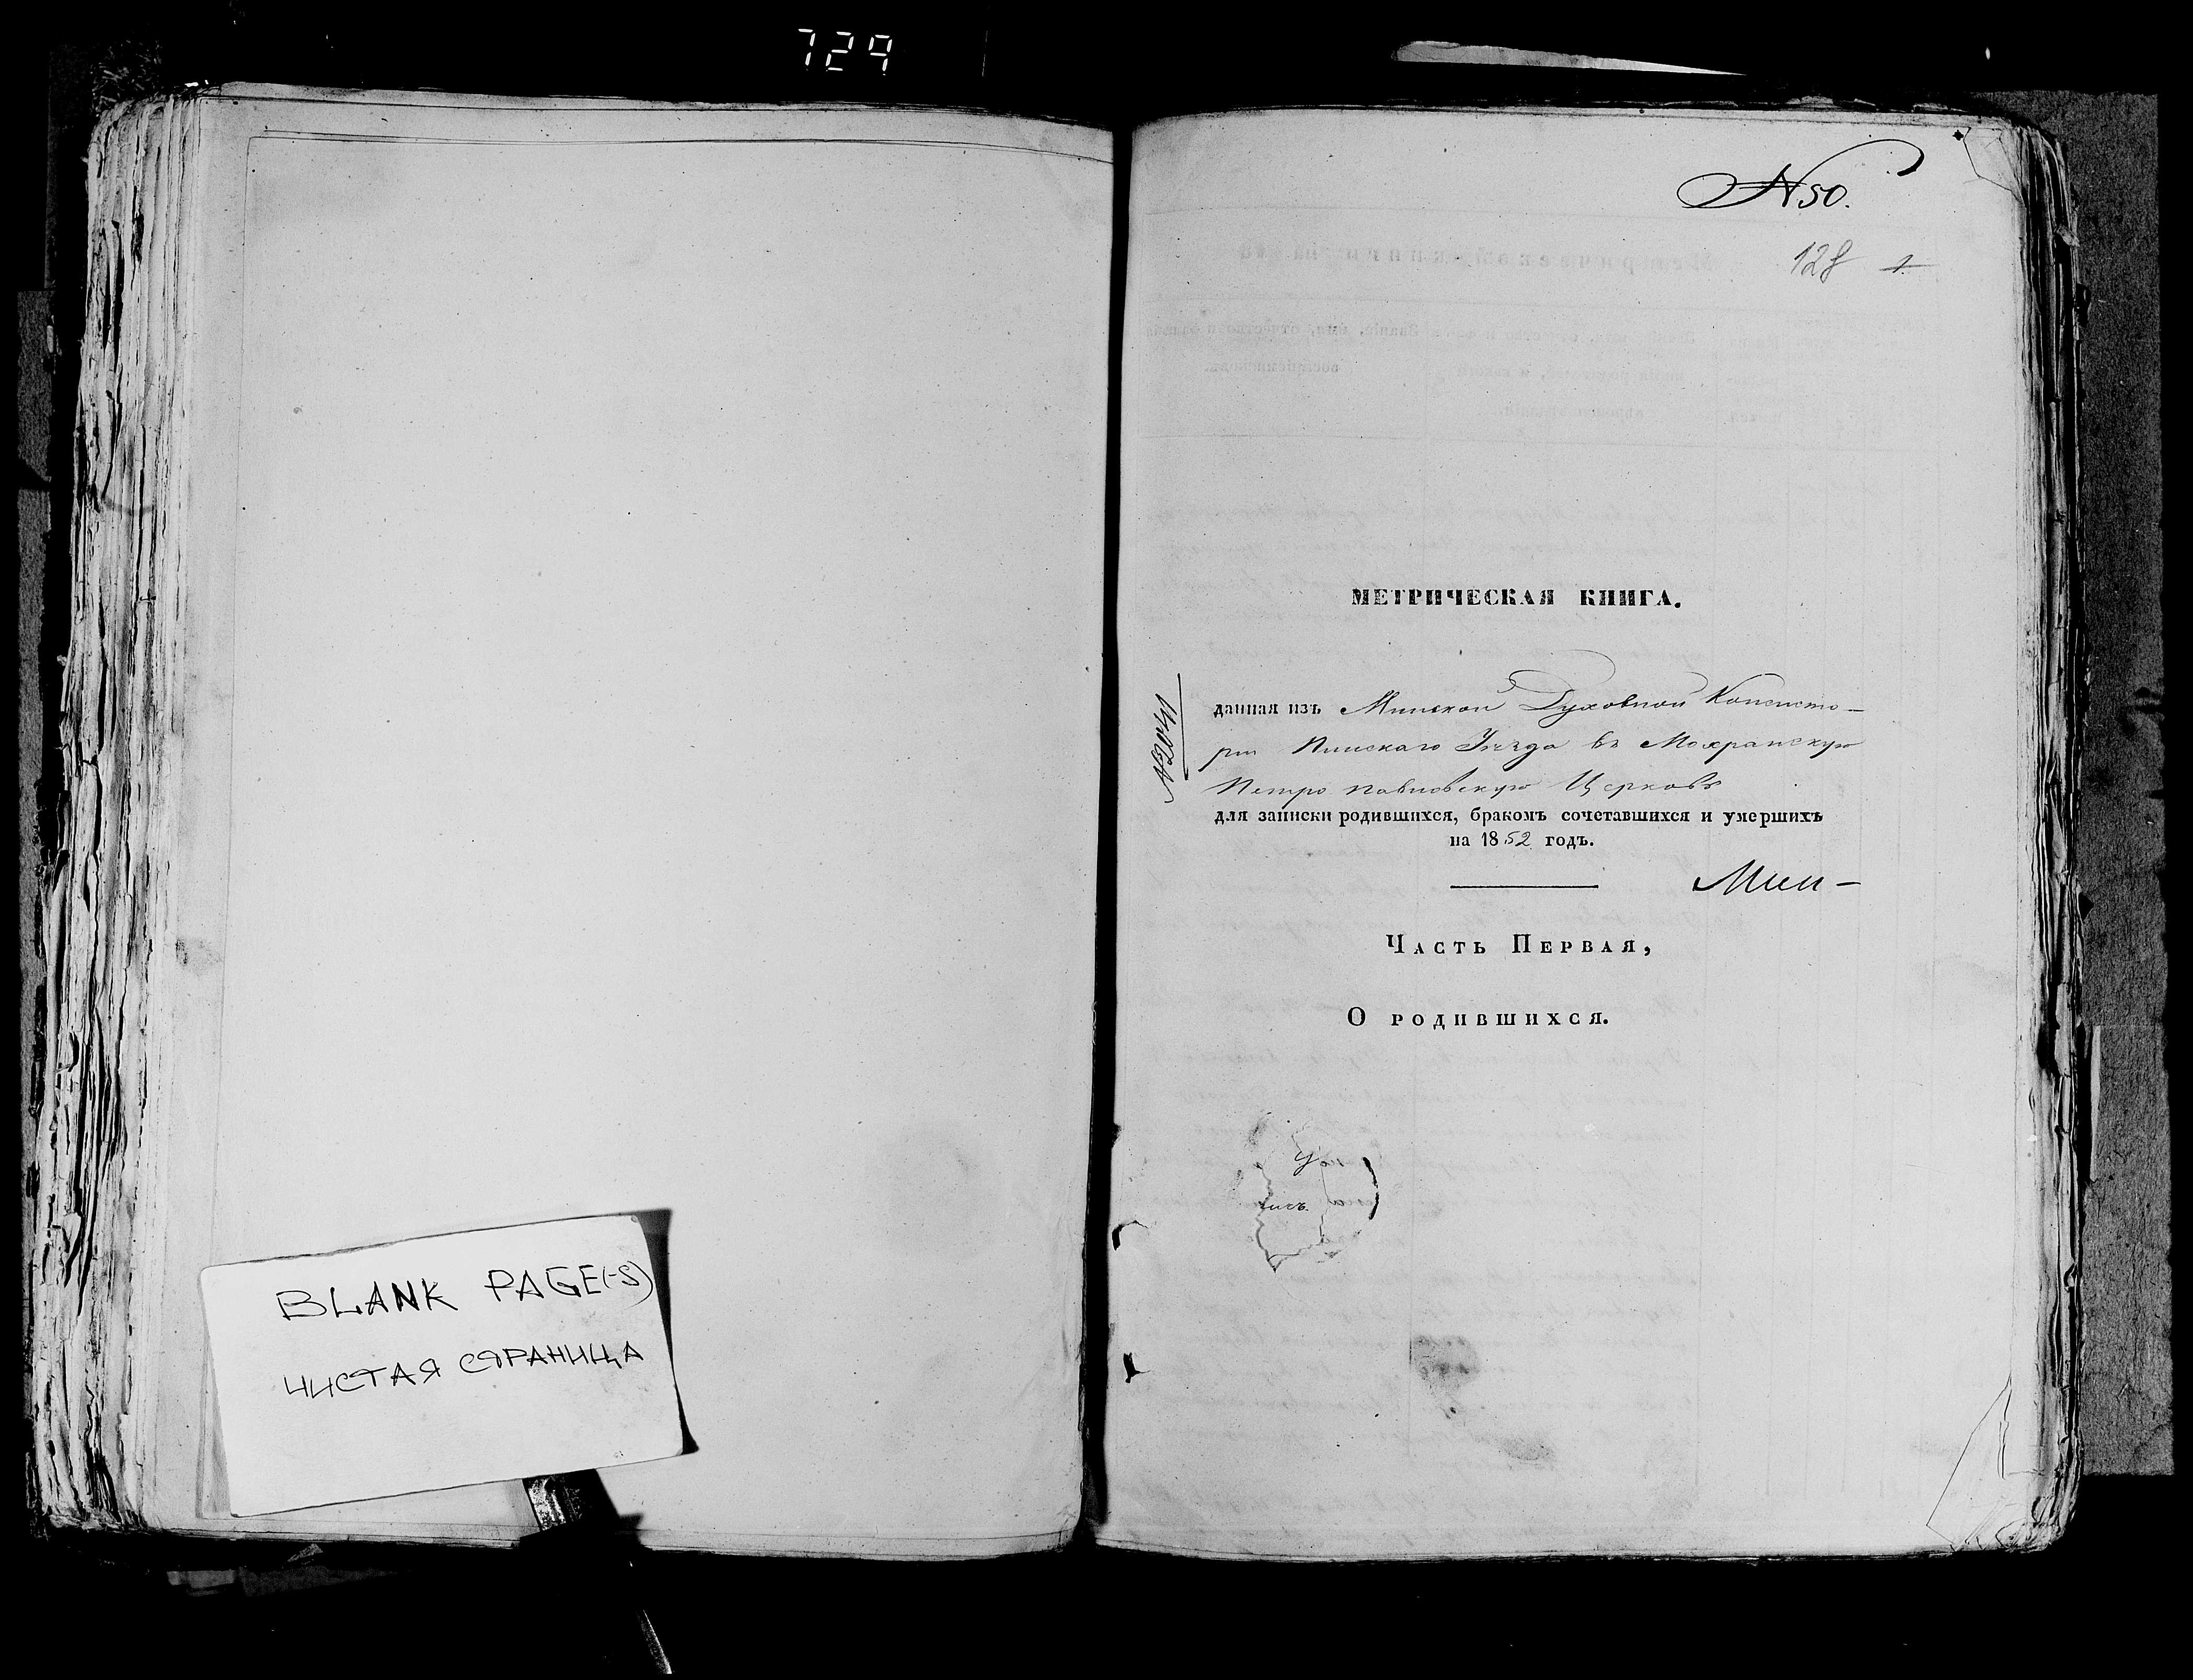 729
BLANK PAGE(-S)
ЧИСТАЯ СТРАНИЦА
N 50.
128 1.
МЕТРИЧЕСКАЯ КНИГА.
N 2041
данная изъ Минской Духовной Консисто-
рiи Пинскаго Уѣзда въ Мохранскую
Петро павловскую Церковь
для записки родившихся, бракомъ сочетавшихся и умершихъ
на 1852 годъ.
Мин-
Часть Первая,
О родившихся.